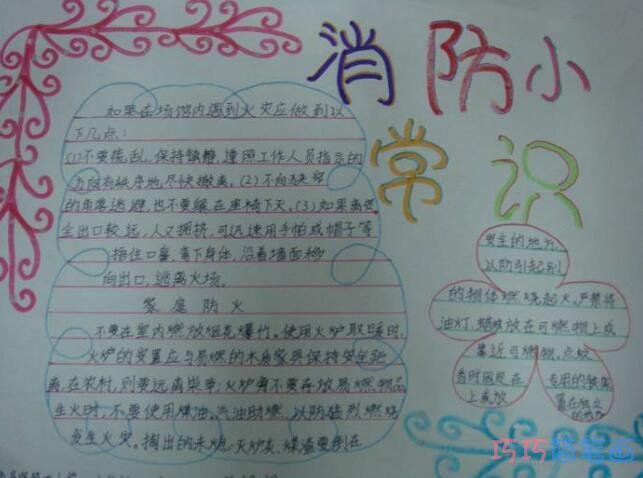 消防小
常识
如果在场馆内遇到火灾应做到以
下几点:
(1)不要慌乱,保持镇静,遵照工作人员指示的
方向有秩序地,尽快撤离。(2)不向狭窄
的角落逃避,也不要躲在座椅下天。(3)如果离安
全出口较远,人又拥挤,可迅速用手帕或帽子等
捂住口鼻,弯下身体,沿着墙面移
向出口,逃离火场。
家庭防火
不要在室内燃放烟花爆竹。使用火炉取暖时,
火炉的安置应与易燃的木质家具保持安全距
离,在农村,则要远离柴草;火炉旁不要存放易燃物品
生火时,不要使用煤油、汽油助燃,以防猛烈燃烧
发生火灾。掏出的未熄灭炉灰、煤渣要倒在
安全的地方,
以防引起别
的物体燃烧起火。严禁将
油灯、蜡烛放在可燃物上或
靠近可燃物,点蚊
香时固定在
专用的铁架
上或放
置在
巧巧简笔画